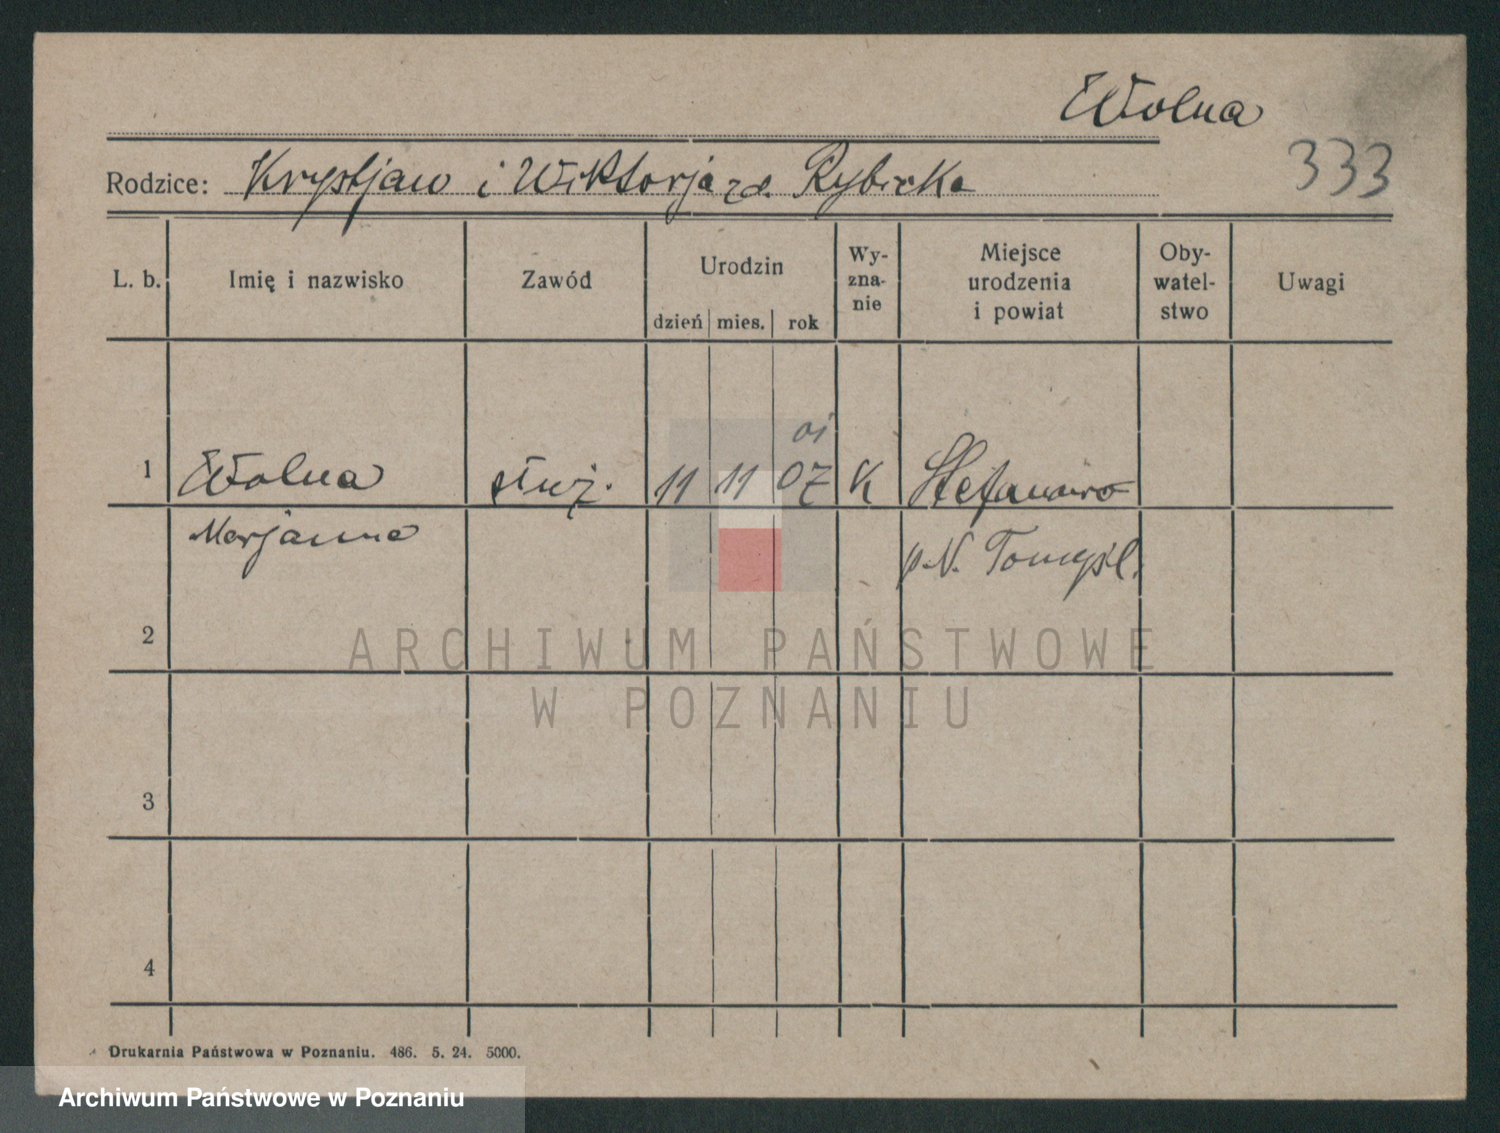 Wolna
333
Rodzice: Krystjan i Wiktorja zd. Rybicka
L. b.
Imię i nazwisko
Zawód
Urodzin
dzień mies. rok
Wy-
zna-
nie
Miejsce
urodzenia
i powiat
Oby-
watel-
stwo
Uwagi
01
1 Wolna służ. 11 11 07 K Stefanowo
Marjanna p. N. Tomyśl.
2
3
4
ARCHIWUM PAŃSTWOWE
W POZNANIU
Drukarnia Państwowa w Poznaniu. 486. 5. 24. 5000.
Archiwum Państwowe w Poznaniu